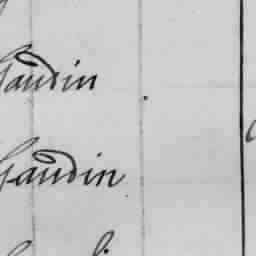 Gaudin
Gaudin